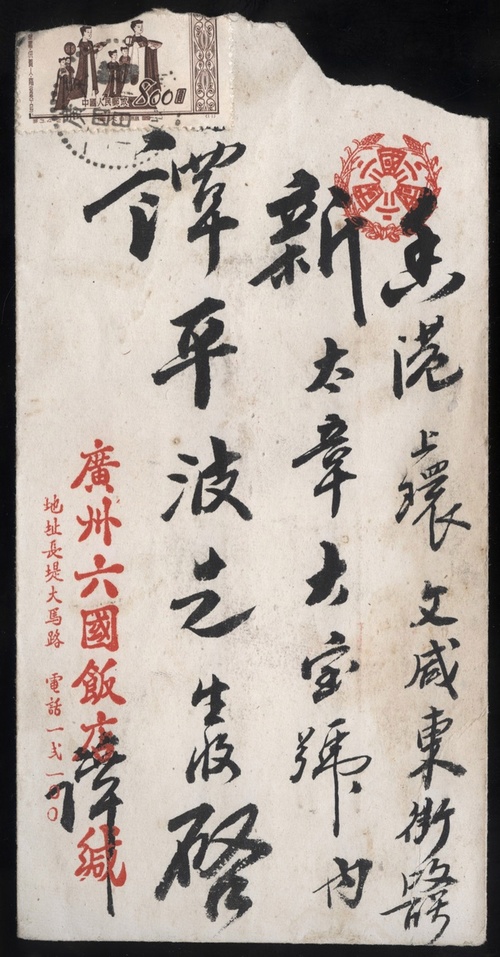 香港上環文咸東街
新太章大宝號內
譚平波先生收啓
令
廣州六國飯店緘
譚
地址長堤大馬路 電話一弍一〇〇
中國人民郵政
800圓